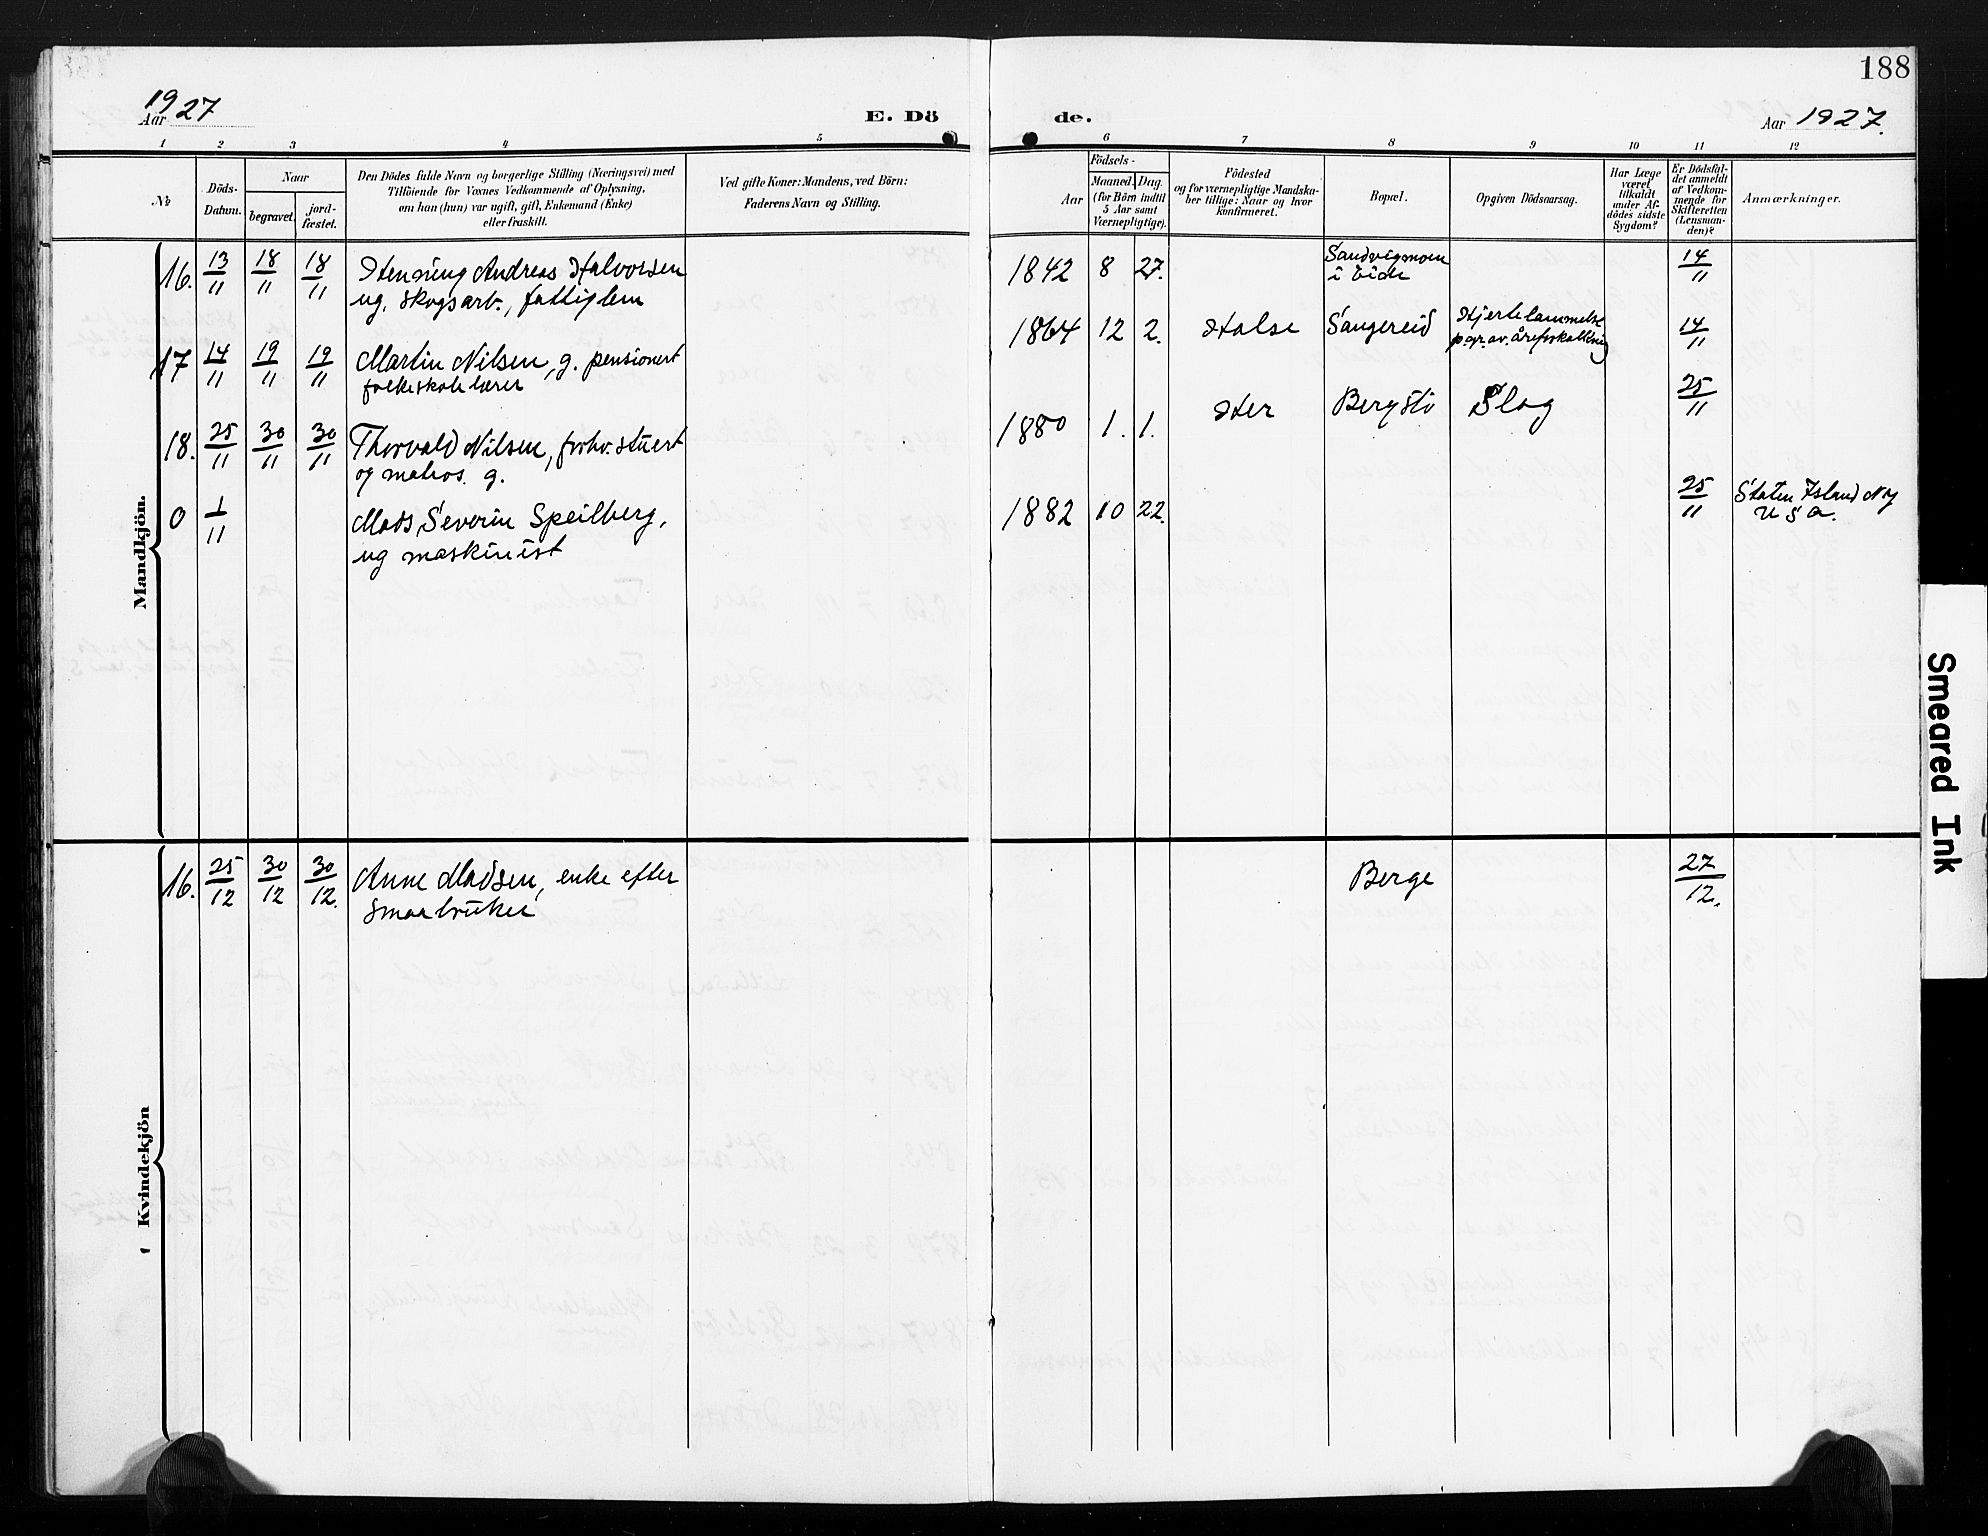 188
Aar 1927
E. Dö
de.
Aar 1927.
1 2 3 4 5 6 7 8 9 10 11 12
№
Döds-
Datum.
Naar
begravet.
jord-
fæstet.
Den Dödes fulde Navn og borgerlige Stilling (Næringsvei) med
Tilföiende for Voxnes Vedkommende af Oplysning,
om han (hun) var ugift, gift, Enkemand (Enke)
eller fraskilt.
Ved gifte Koner: Mandens, ved Börn:
Faderens Navn og Stilling.
Födsels-
Aar
Maaned.
Dag.
(for Börn indtil
5 Aar samt
Værnepligtige).
Födested
og for værnepligtige Mandska-
ber tillige: Naar og hvor
konfirmeret.
Bopæl.
Opgiven Dödsaarsag.
Har Læge
været
tilkaldt
under Af-
dödes sidste
Sygdom?
Er Dödsfal-
det anmeldt
af Vedkom-
mende for
Skifteretten
(Lensman-
den)?
Anmærkninger.
Mandkjön.
16. 13/11 18/11 18/11 Henning Andreas Halvorsen
ug. skogsarb., fattiglem
1842 8 27. Sandvigmoen
i Eide
14/11
17 14/11 19/11 19/11 Martin Nilsen, g. pensionert
folkeskolelærer
1864 12 2. Halse Sangereid Hjertelammelse
p.gr.av.åreforkalkning
14/11
18. 25/11 30/11 30/11 Thorvald Nilsen, forhv. stuert
og matros. g.
1880 1. 1. Her Bergstö Slag 25/11
0 1/11 Mads Severin Speilberg,
ug maskinist
1882 10 22. 25/11 Staten Island NY
USA.
Kvindekjön
16. 25/12 30/12 30/12. Anne Madsen, enke efter
smaabruker
Berge 27/12.
Smeared Ink